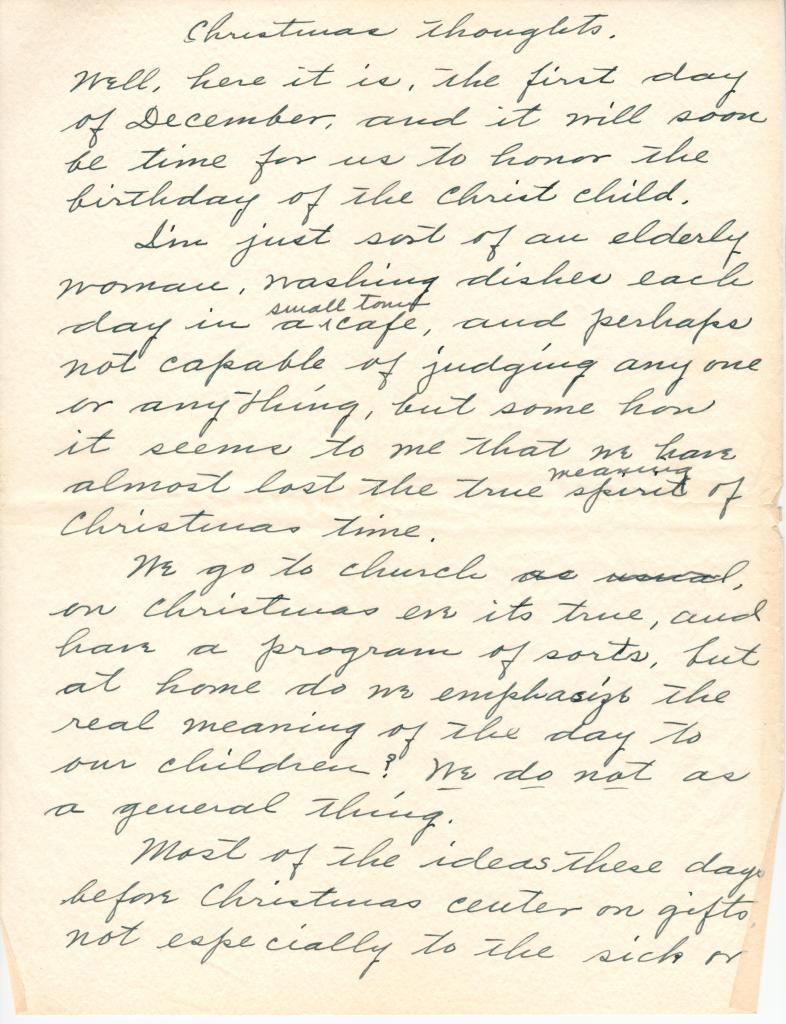 Christmas thoughts.
Well, here it is, the first day
of December, and it will soon
be time for us to honor the
birthday of the Christ child.
I'm just sort of an elderly
woman, washing dishes each
small town
day in a cafe, and perhaps
not capable of judging any one
or anything, but some how
it seems to me that we have
meaning
almost lost the true spirit of
Christmas time.
We go to church as usual,
on Christmas eve its true, and
have a program of sorts, but
at home do we emphasize the
real meaning of the day to
our children? We do not as
a general thing.
Most of the ideas these days
before Christmas center on gifts,
not especially to the sick or